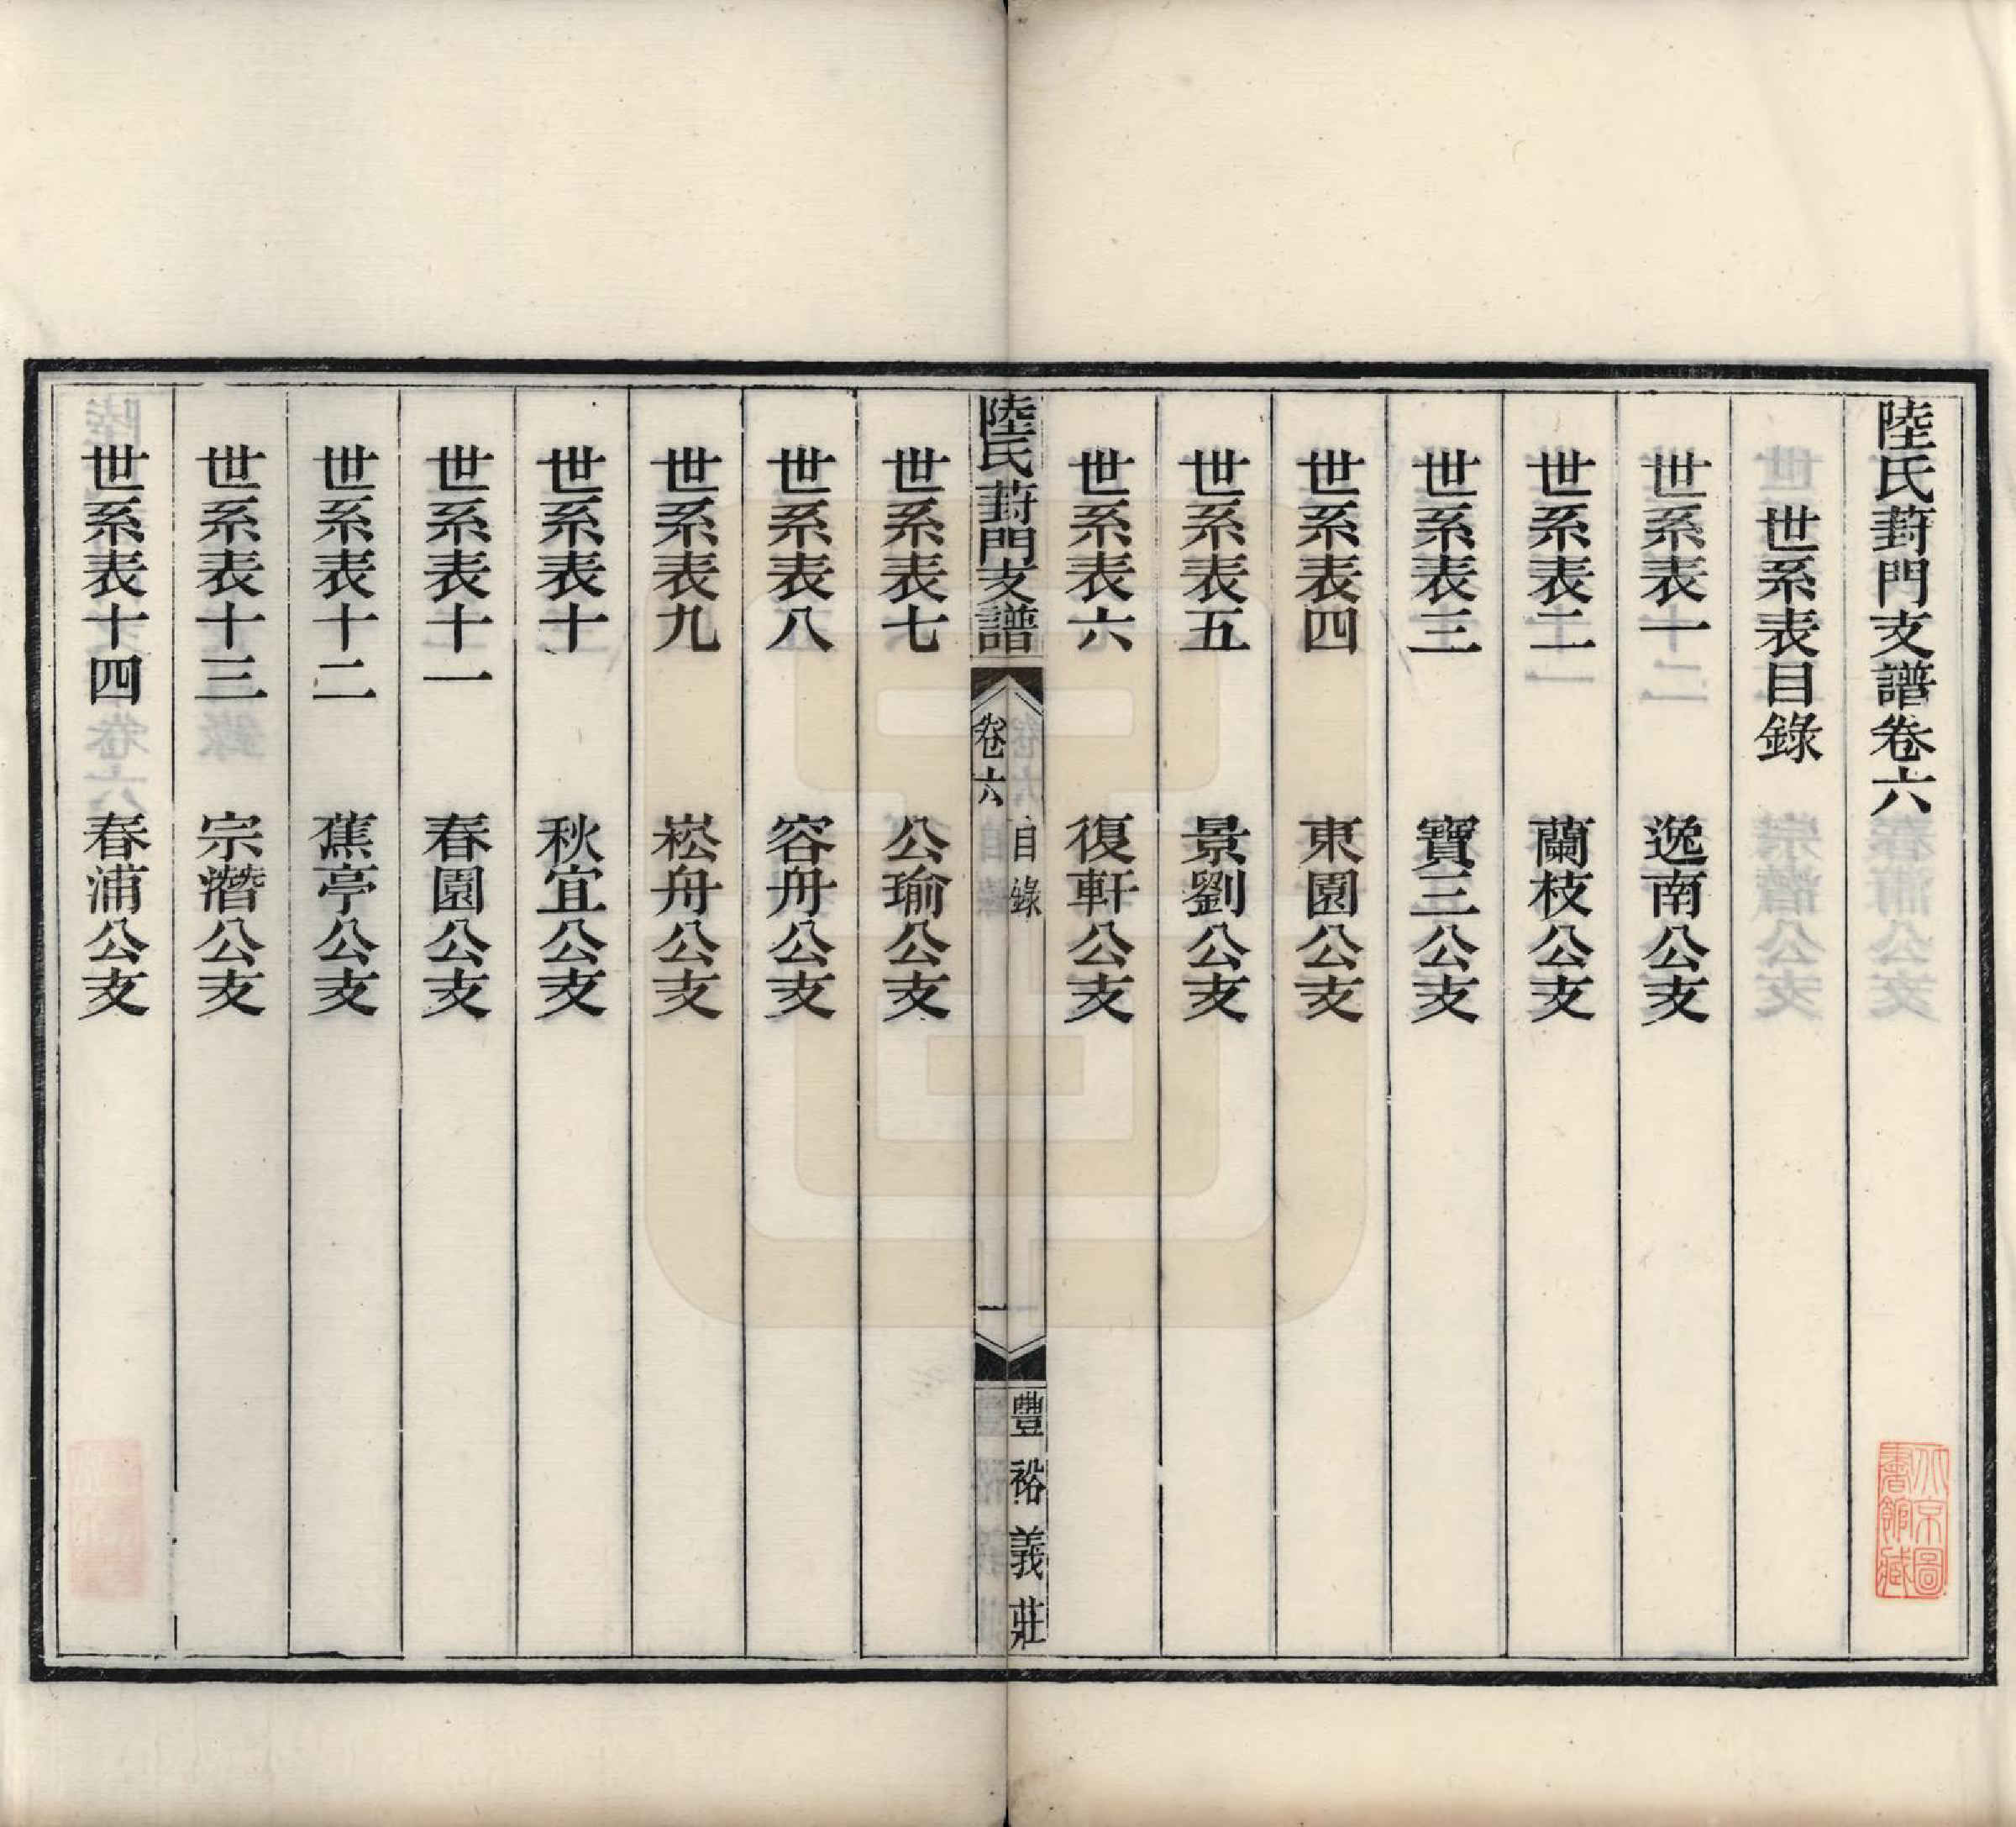 陸氏葑門支譜卷六
世系表目錄
世系表一 逸南公支
世系表二 蘭枝公支
世系表三 寶三公支
世系表四 東園公支
世系表五 景劉公支
世系表六 復軒公支
陸氏葑門支譜 卷六 目錄 一 豐裕義莊
世系表七 公瑜公支
世系表八 容舟公支
世系表九 崧舟公支
世系表十 秋宜公支
世系表十一 春園公支
世系表十二 蕉亭公支
世系表十三 宗濳公支
世系表十四 春浦公支
北京圖書館藏